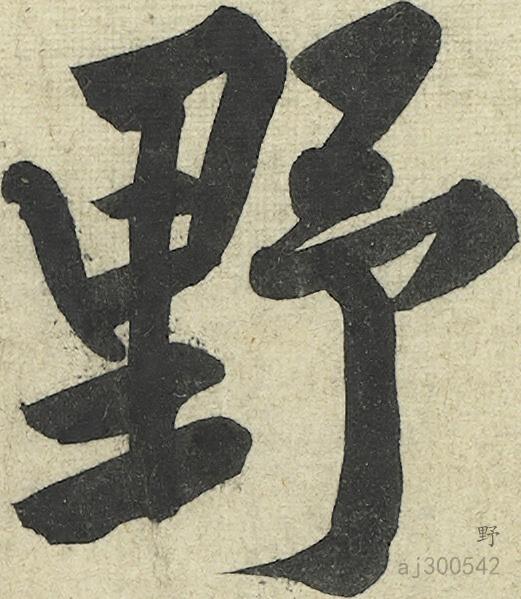 野
野
aj300542